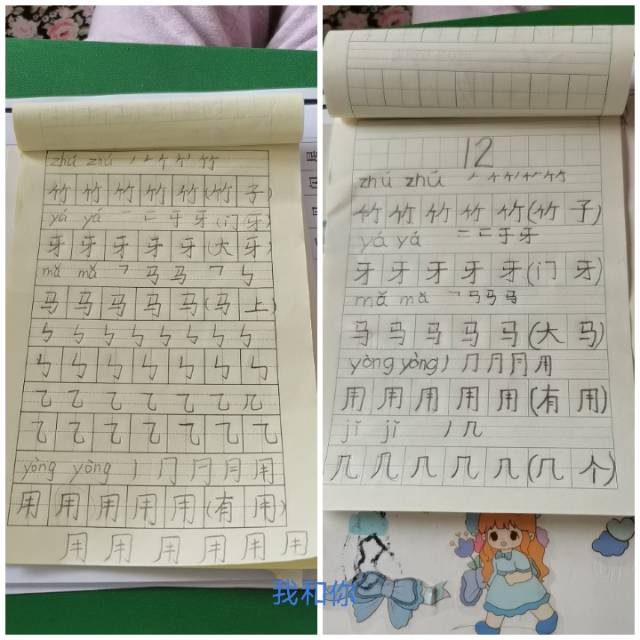 zhú zhú 竹
竹 竹 竹 竹 竹 (竹 子)
yá yá 一 牙 牙 (门 牙)
牙 牙 牙 牙 牙 (大 牙)
mǎ mǎ ㇕ 马 马 ㇕ ㄣ
马 马 马 马 马 (马 上)
ㄣ ㄣ ㄣ ㄣ ㄣ ㄣ ㄣ
ㄣ ㄣ ㄣ ㄣ ㄣ ㄣ ㄣ
乙 乙 乙 乙 乙 乙 几
乙 乙 乙 乙 乙 乙 乙
yòng yòng 丨 冂 月 用
用 用 用 用 用 (有 用)
用 用 用 用 用 用
12
zhú zhú 竹
竹 竹 竹 竹 竹 (竹 子)
yá yá 牙
牙 牙 牙 牙 牙 (门 牙)
mǎ mǎ ㇕ 马 马
马 马 马 马 马 (大 马)
yòng yòng 丿 冂 月 月 用
用 用 用 用 用 (有 用)
jǐ jǐ 丿 几
几 几 几 几 几 (几 个)
我和你